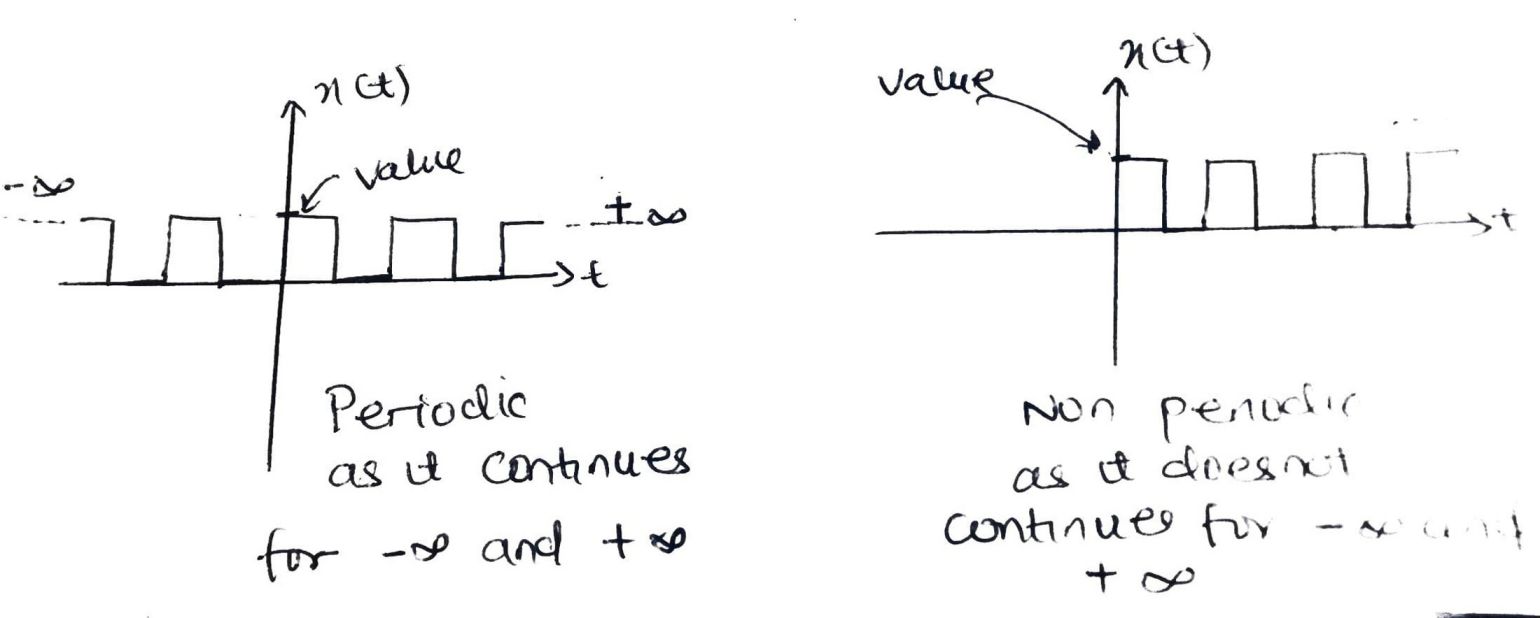 x(t)
value
-∞
+∞
t
Periodic
as it continues
for -∞ and +∞
x(t)
value
t
Non periodic
as it does not
continues for -∞ and
+ ∞